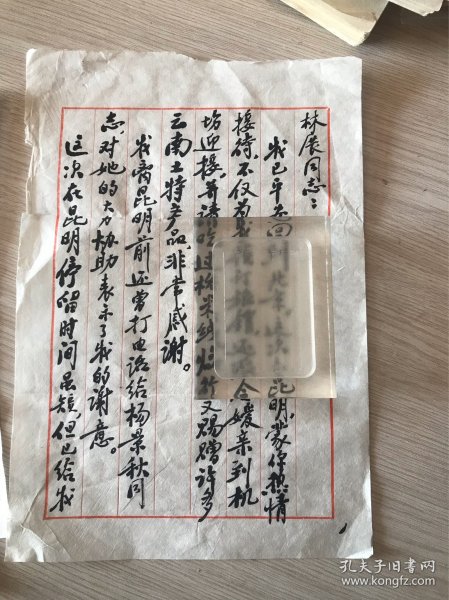 林展同志：
我已平安回到北京。这次 昆明，蒙你热情
接待，不仅为我 令媛亲到机
场迎接，并请吃过桥米线，临行又赐赠许多
云南土特产品，非常感谢。
我离昆明前，还曾打电话给杨景秋同
志，对她的大力协助表示了我的谢意。
这次在昆明停留时间虽短，但已给我
孔夫子旧书网
www.kongfz.com